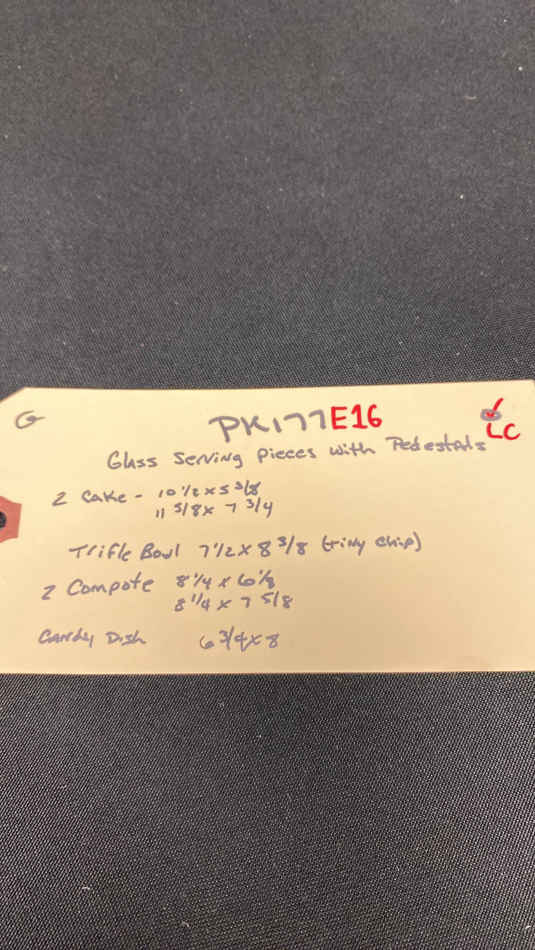 G
PK177E16
LC
Glass Serving Pieces with Pedestals
2 Cake - 10 1/2 x 5 3/8
11 5/8 x 7 3/4
Trifle Bowl 7 1/2 x 8 3/8 (tiny chip)
2 Compote 8 1/4 x 6 1/8
8 1/4 x 7 5/8
Candy Dish 6 3/4 x 8